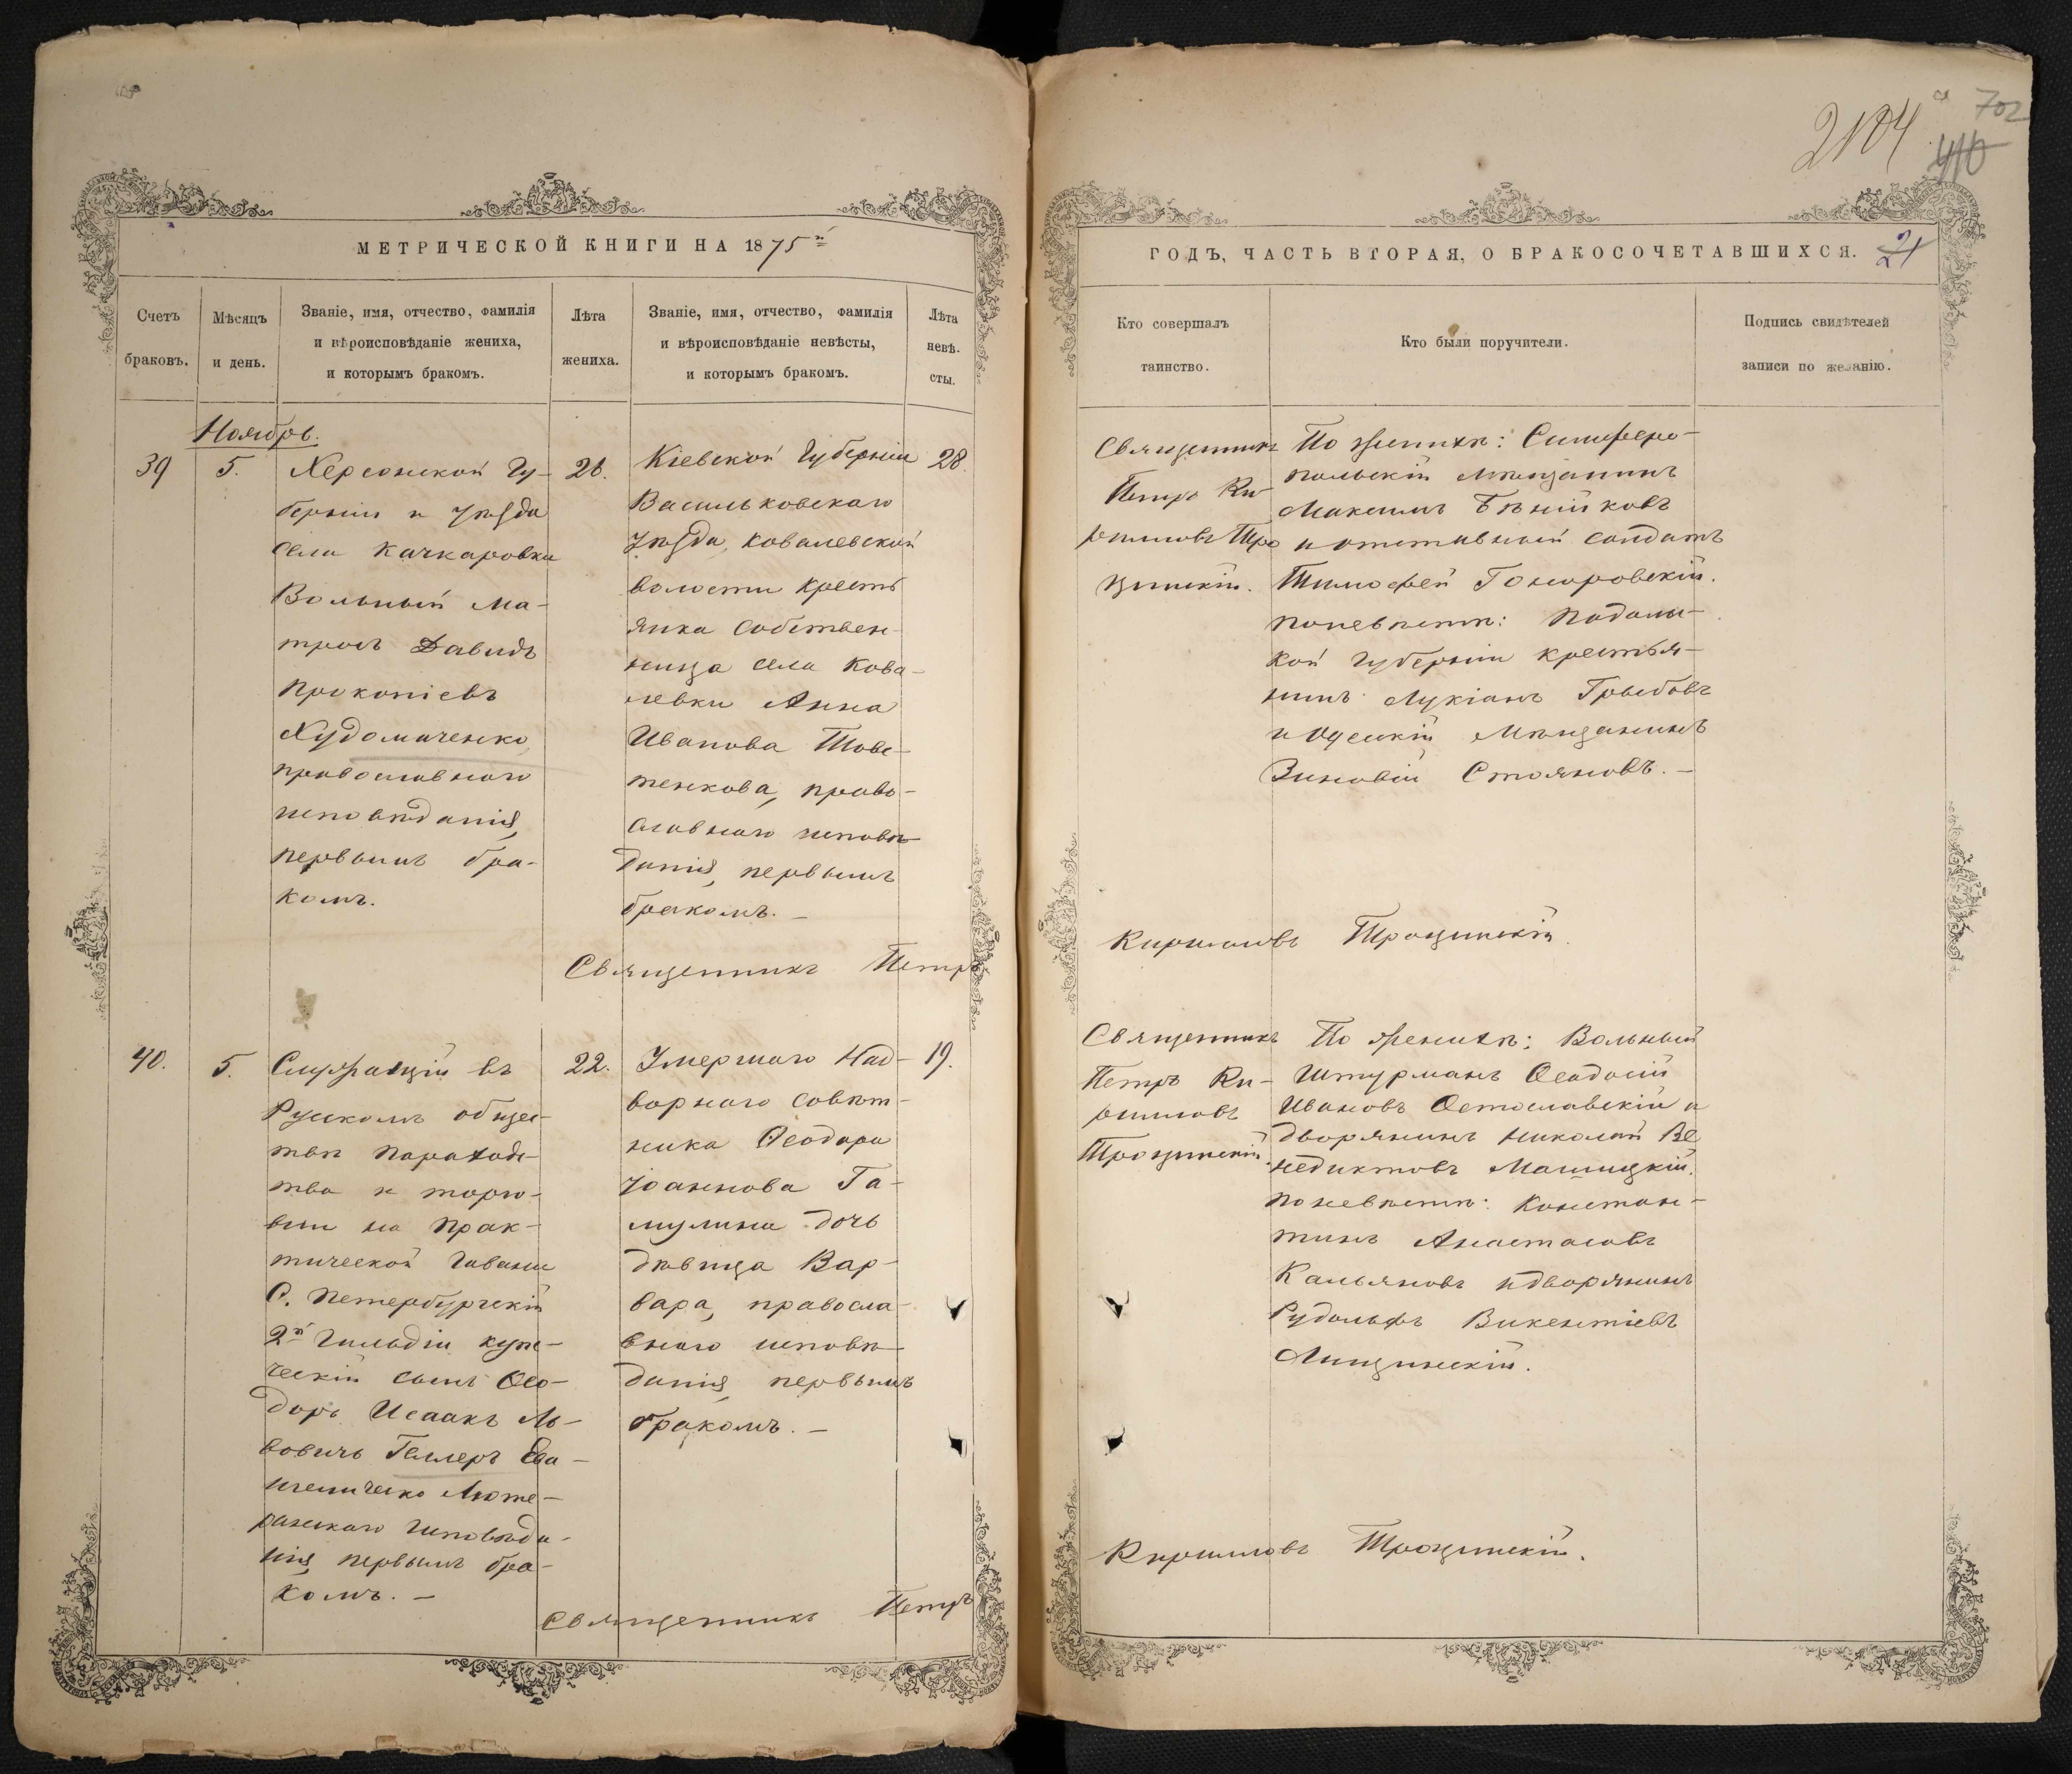 2104
702
410
МЕТРИЧЕСКОЙ КНИГИ НА 1875й
ГОДЪ, ЧАСТЬ ВТОРАЯ, О БРАКОСОЧЕТАВШИХСЯ.
21
Счетъ браковъ.
Мѣсяцъ и день.
Званіе, имя, отчество, фамилія
и вѣроисповѣданіе жениха,
и которымъ бракомъ.
Лѣта жениха.
Званіе, имя, отчество, фамилія
и вѣроисповѣданіе невѣсты,
и которымъ бракомъ.
Лѣта невѣ-
сты.
Кто совершалъ
таинство.
Кто были поручители.
Подпись свидѣтелей
записи по желанію.
Ноябрь.
39
5.
Херсонской Гу-
берніи и уѣзда
села Качкаровки
Вольный Ма-
тросъ Давидъ
Прокопіевъ
Худомаченко,
православнаго
исповѣданія,
первымъ бра-
комъ.
26.
Кіевской Губерніи
Васильковскаго
уѣзда, Ковалевской
волости крестъ
янка собствен-
ница села Кова-
левки Анна
Иванова Тове-
тенкова, право-
славнаго исповѣ-
данія, первымъ
бракомъ. —
28.
Священникъ Петръ
Священникъ
Петръ Ки-
рилловъ Тро
щинскій.
По женихѣ: Симферо-
польскій мѣщанинъ
Максимъ Бѣнійковъ
и отставной солдатъ
Тимофей Гонсаровскій.
по невѣстѣ: Подоль-
ской губерніи крестья-
нинъ Лукіанъ Грыбовъ
и Одесскій мѣщанинъ
Зиновій Стояновъ. —
Кирилловъ Трощинскій.
40.
5.
Служащій въ
Русскомъ общес-
твѣ пароходс-
тва и торго-
вли на Прак-
тической Гавани
С. Петербургскій
2й гильдіи купе-
ческій сынъ Ѳео-
доръ Исаакъ Ль-
вовичъ Геллеръ Ева-
нгелическо Люте-
ранскаго исповѣда-
нія, первымъ бра-
комъ. —
22.
Умершаго Над-
ворнаго совѣт-
ника Ѳеодора
Іоаннова Га-
мулина дочь
дѣвица Вар-
вара, правосла-
внаго исповѣ-
данія, первымъ
бракомъ. —
19.
Священникъ Петръ
Священникъ
Петръ Ки-
рилловъ
Трощинскій.
По женихѣ: Вольный
Штурманъ Ѳеодосій
Ивановъ Остославскій и
дворянинъ Николай Ве
недиктовъ Машицкій.
по невѣстѣ: Констан-
тинъ Анастасовъ
Кальяновъ и дворянинъ
Рудольфъ Викентіевъ
Лищинскій.
Кирилловъ Трощинскій.